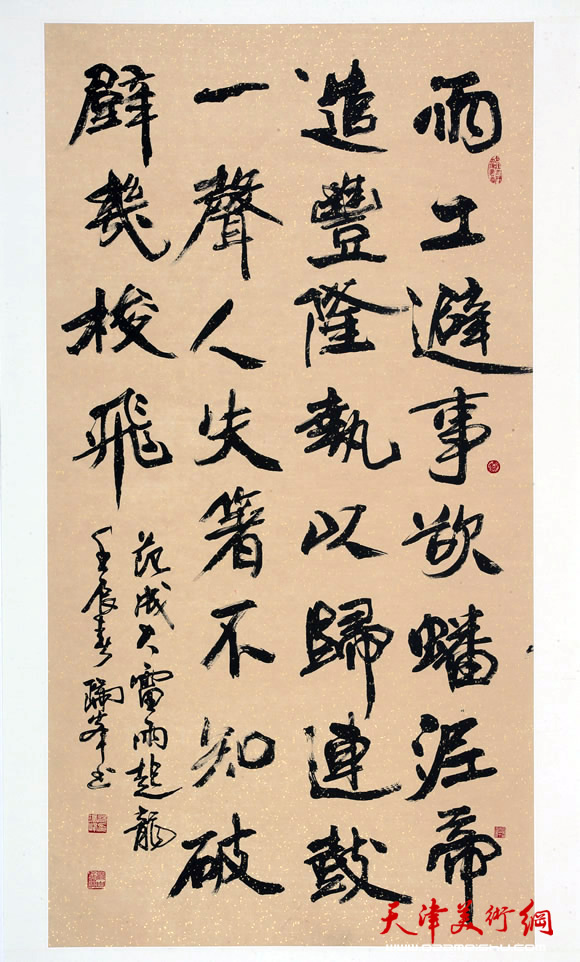 雨工避事欲蟠泥帝
造豐隆執以歸連鼓
一聲人失箸不知破
壁幾梭飛
范成大雷雨起龍
壬辰春瑞峰书
天津美術網